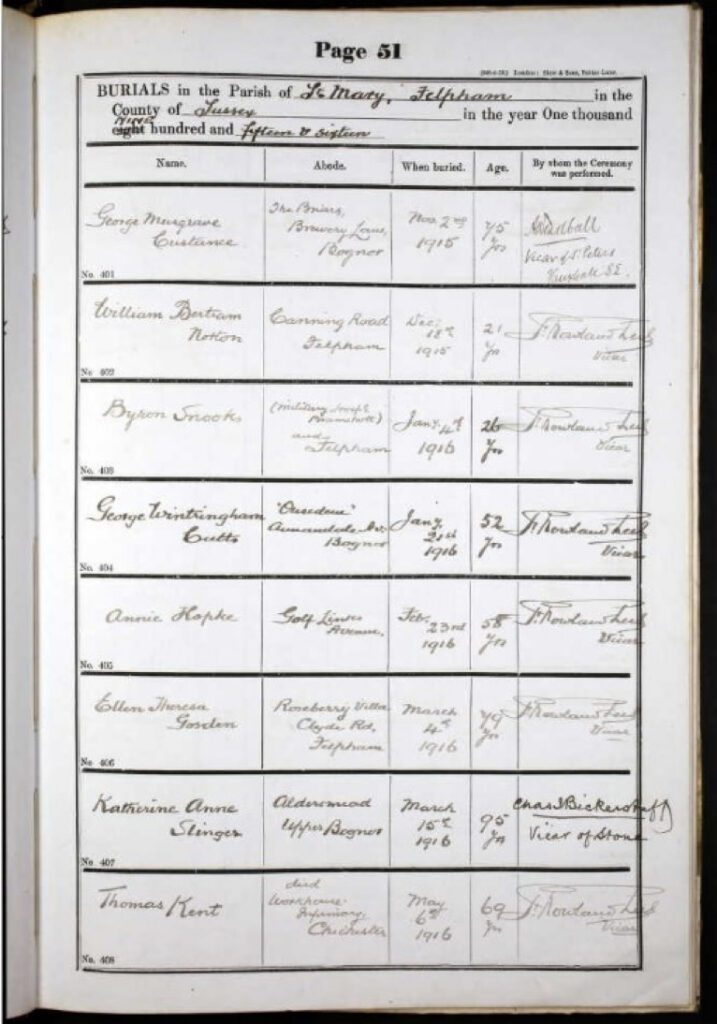 Page 51
BURIALS in the Parish of St Mary, Felpham in the
County of Sussex in the year One thousand
nine
eight hundred and fifteen & sixteen
Name. Abode. When buried. Age. By whom the Ceremony was performed.
George Musgrave
Custance
No. 401
The Briars,
Brewery Lane,
Bognor
Nov. 2nd
1915
75
Yrs
Vicar of St Peters
Vauxhall S.E.
William Bertram
Notton
No. 402
Canning Road
Felpham
Dec.
18th
1915
21
Yrs
Rowland
Vicar
Byron Snooks
No. 403
(Military
and
Felpham
Jany. 4th
1916
26
Yrs
Rowland
Vicar
George Wintringham
Cutts
No. 404
Annandale Av.
Bognor
Jany.
21st
1916
52
Yrs
Rowland
Vicar
Annie Hopke
No. 405
Golf Links
Avenue.
Feb.
23rd
1916
58
Yrs
Rowland
Vicar
Ellen Theresa
Gosden
No. 406
Roseberry Villa
Clyde Rd,
Felpham
March
4th
1916
79
Yrs
Rowland
Vicar
Katherine Anne
Slinger
No. 407
Aldersmead
Upper Bognor
March
15th
1916
95
Yrs
Chas J Bickersteff
Vicar of Stone
Thomas Kent
No. 408
died
Workhouse
Infirmary,
Chichester
May
6th
1916
69
Yrs
Rowland
Vicar